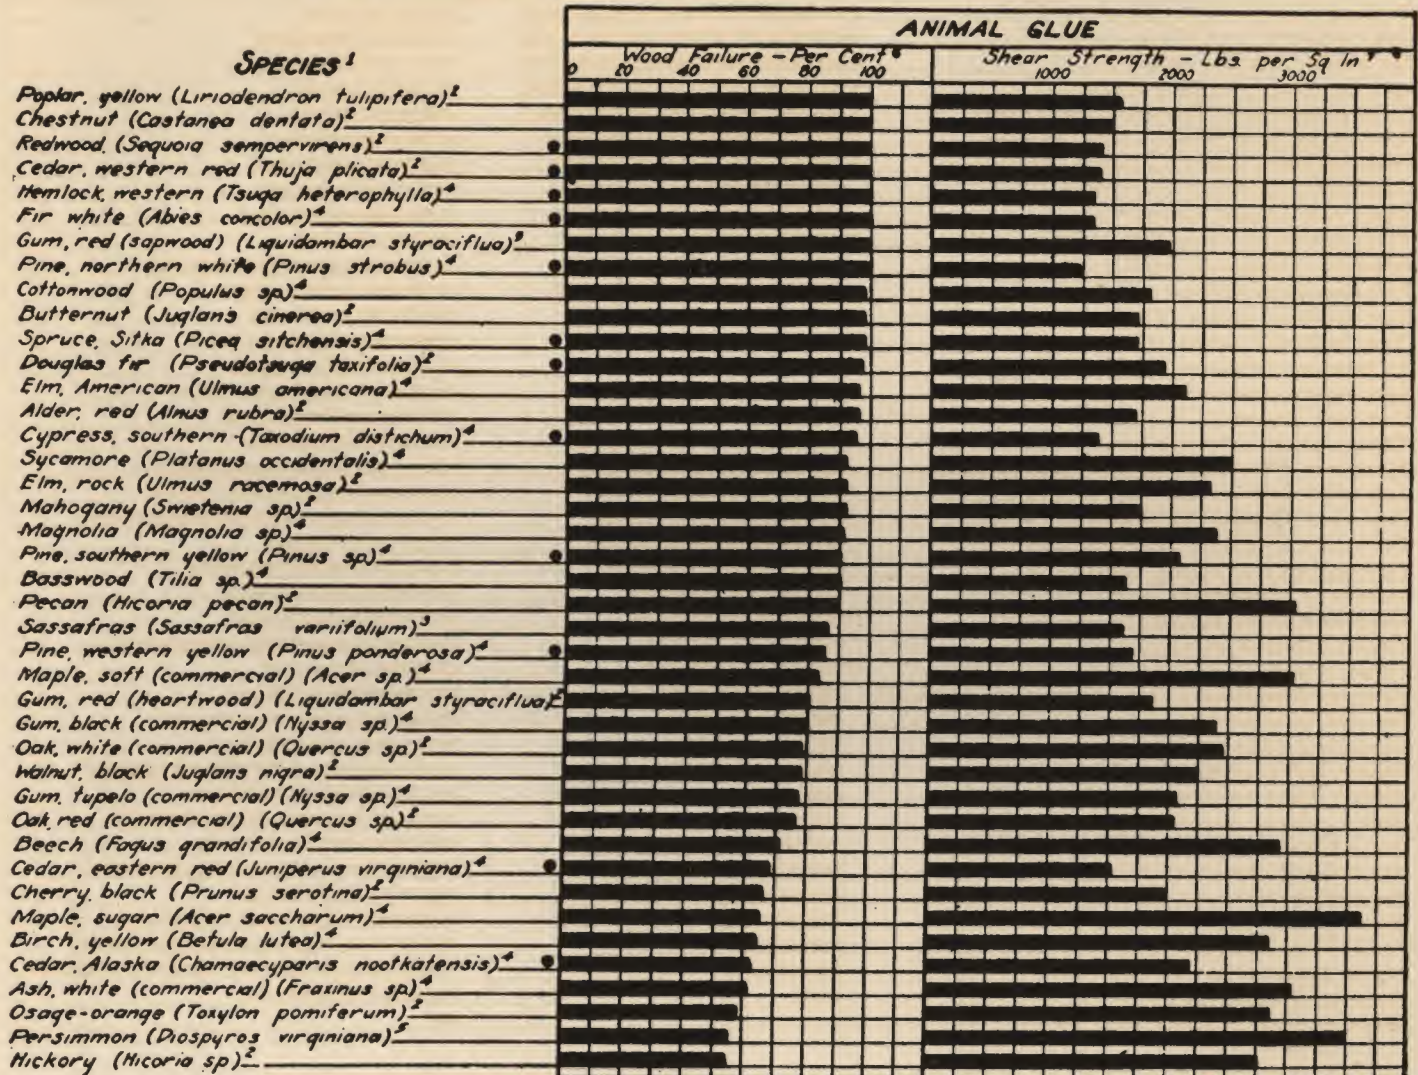 ANIMAL GLUE
SPECIES 1
Wood Failure - Per Cent 6
Shear Strength - Lbs. per Sq In 7 8
0 20 40 60 80 100
1000 2000 3000
Poplar, yellow (Liriodendron tulipifera) 2
Chestnut (Castanea dentata) 2
Redwood, (Sequoia sempervirens) 2
Cedar, western red (Thuja plicata) 2
Hemlock, western (Tsuga heterophylla) 4
Fir white (Abies concolor) 4
Gum, red (sapwood) (Liquidambar styraciflua) 9
Pine, northern white (Pinus strobus) 4
Cottonwood (Populus sp.) 4
Butternut (Juglans cinerea) 2
Spruce, Sitka (Picea sitchensis) 4
Douglas fir (Pseudotsuga taxifolia) 2
Elm, American (Ulmus americana) 4
Alder, red (Alnus rubra) 2
Cypress, southern (Taxodium distichum) 4
Sycamore (Platanus occidentalis) 4
Elm, rock (Ulmus racemosa) 2
Mahogany (Swietenia sp.) 2
Magnolia (Magnolia sp) 4
Pine, southern yellow (Pinus sp) 4
Basswood (Tilia sp.) 4
Pecan (Hicoria pecan) 2
Sassafras (Sassafras variifolium) 3
Pine, western yellow (Pinus ponderosa) 4
Maple, soft (commercial) (Acer sp.) 4
Gum, red (heartwood) (Liquidambar styraciflua)
Gum, black (commercial) (Nyssa sp.) 4
Oak, white (commercial) (Quercus sp.) 2
Walnut, black (Juglans nigra) 2
Gum, tupelo (commercial) (Nyssa sp.) 4
Oak, red (commercial) (Quercus sp.) 2
Beech (Fagus grandifolia) 4
Cedar, eastern red (Juniperus virginiana) 4
Cherry, black (Prunus serotina) 2
Maple, sugar (Acer saccharum) 4
Birch, yellow (Betula lutea) 4
Cedar, Alaska (Chamaecyparis nootkatensis) 4
Ash, white (commercial) (Fraxinus sp.) 4
Osage-orange (Toxylon pomiferum) 2
Persimmon (Diospyros virginiana) 5
Hickory (Hicoria sp) 2